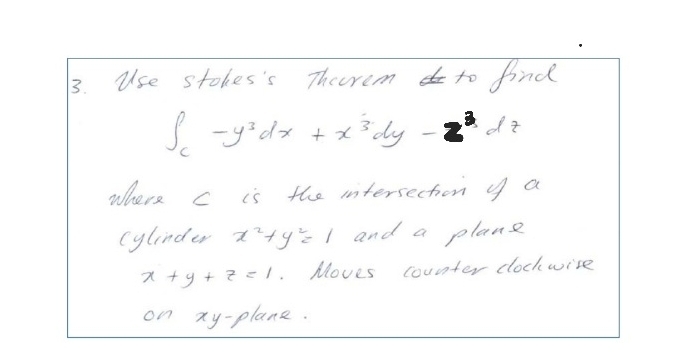 3. Use stokes's Theorem to find
∫_C -y³dx + x³dy - z³ dz
where C is the intersection of a
cylinder x²+y²=1 and a plane
x+y+z=1. Moves counter clockwise
on xy-plane.